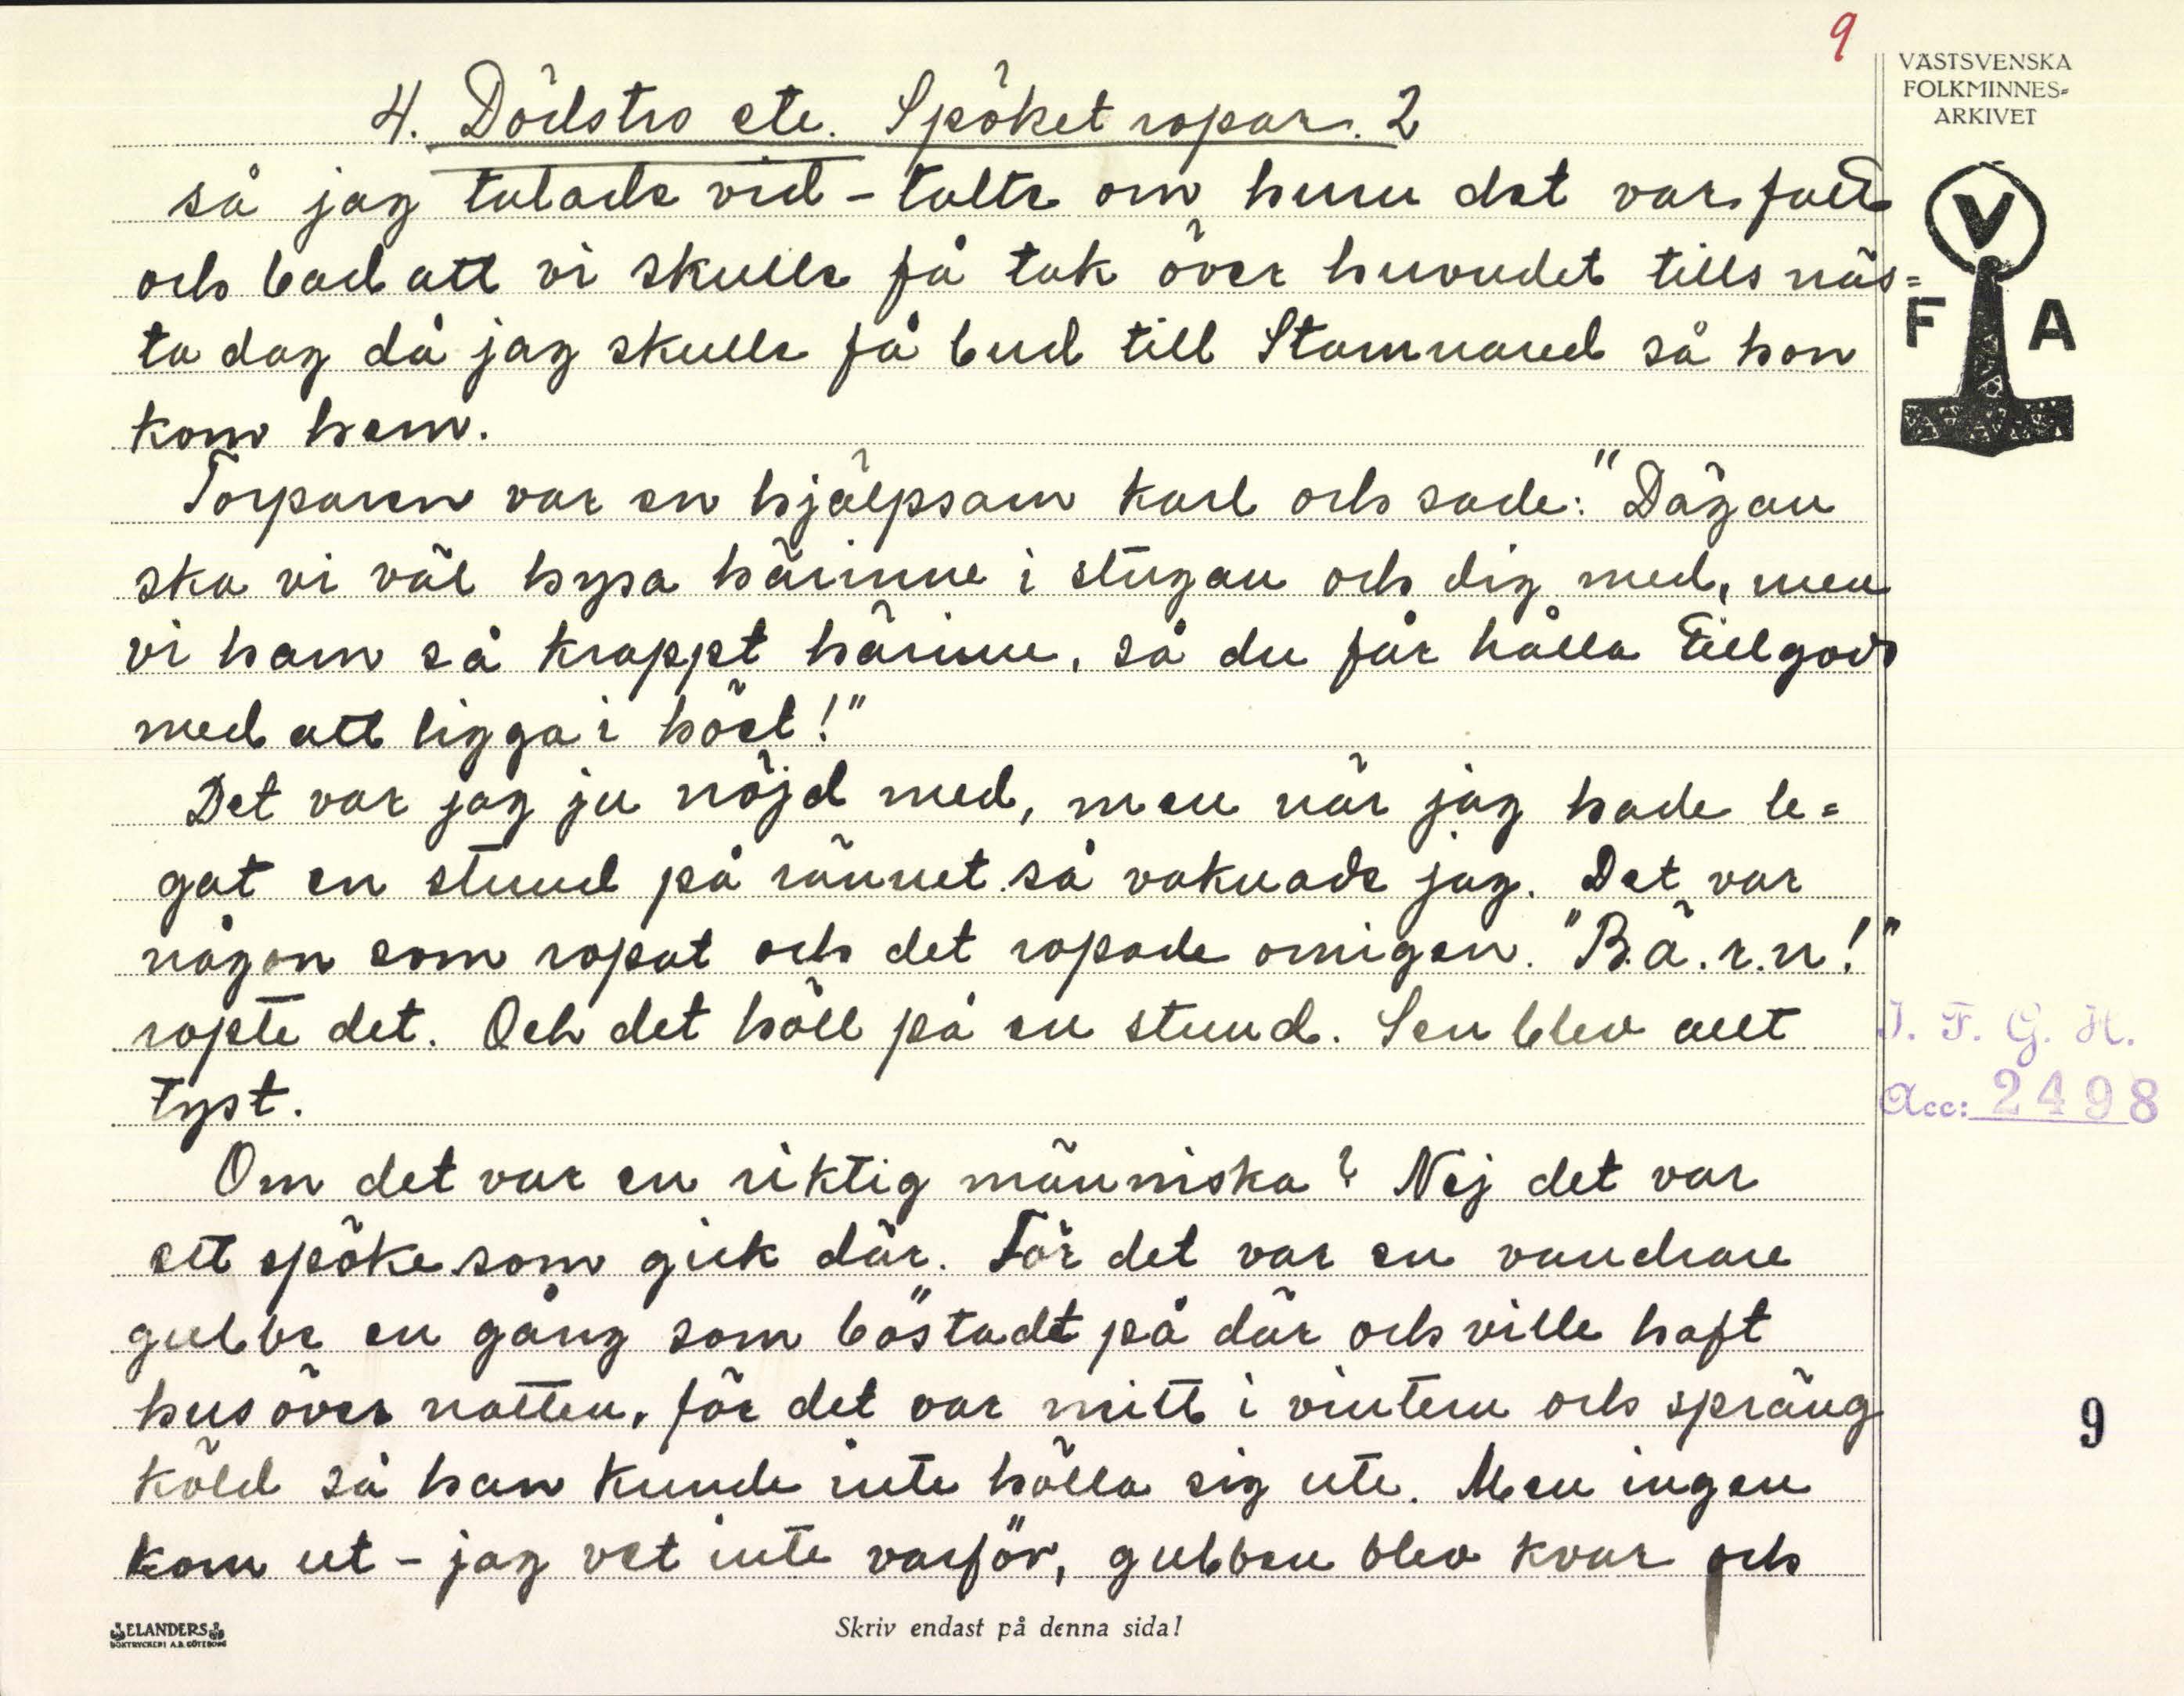 9
VÄSTSVENSKA
FOLKMINNES-
ARKIVET
V
F A
4. Dödstro etc. Spöket ropar. 2
så jag talade vid - talte om huru det var fatt
och bad att vi skulle få tak över huvudet tills näs=
ta dag då jag skulle få bud till Stamnared så hon
kom hem.
Torparen var en hjälpsam karl och sade: "Dägan
ska vi väl hysa härinne i stugan och dig med, men
vi ham så knappt härinne, så du får hålla tillgods
med att ligga i höet!"
Det var jag ju nöjd med, men när jag hade le=
gat en stund på rännet så vaknade jag. Det var
någon som ropat och det ropade omigen. "B.ä.r.n!"
ropte det. Och det höll på en stund. Sen blev allt
tyst.
Om det var en riktig människa? Nej det var
ett spöke som gick där. För det var en vandrare
gubbe en gång som böstadt på där och ville haft
hus över natten, för det var mitt i vintern och spräng
köld så han kunde inte hålla sig ute. Men ingen
kom ut - jag vet inte varför, gubben blev kvar och
I. F. G. H.
Acc: 2498
9
ELANDERS
BOKTRYCKERI A.B. GÖTEBORG
Skriv endast på denna sida!